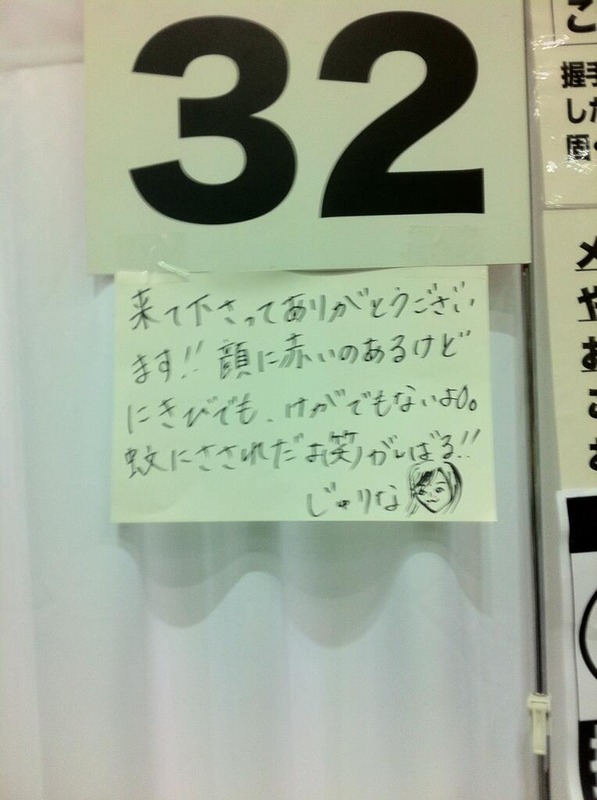 32
来て下さってありがとうござい
ます!! 顔に赤いのあるけど
にきびでも、けがでもないよ。
蚊にさされだよ(笑)がんばる!!
じゅりな
こ
握手
した
固く
メ
や
お
こ
お